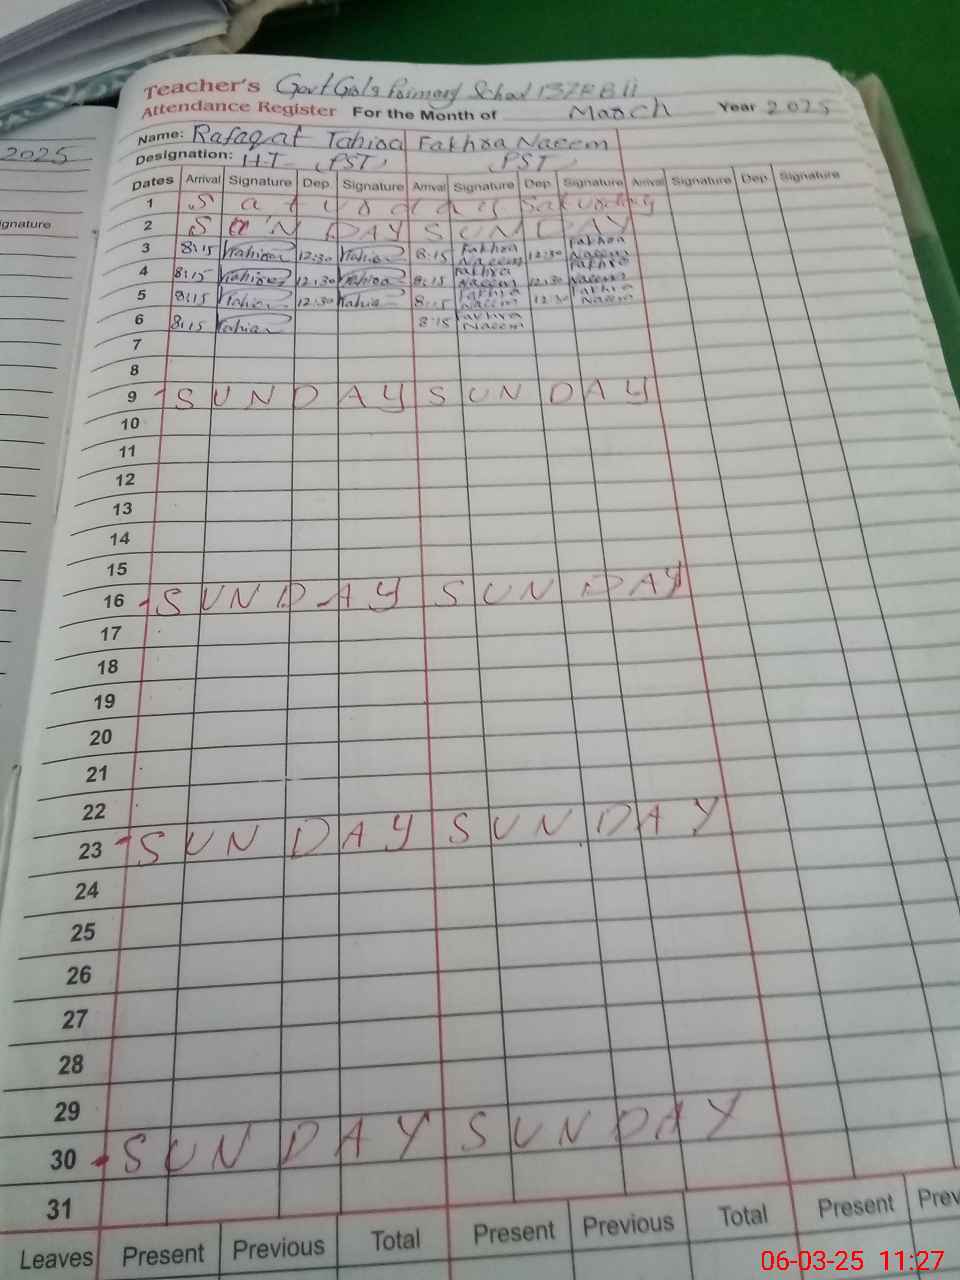 2025
ignature
Teacher's Govt Girls Primary School 137 RB ii
Attendance Register For the Month of March Year 2025
Name: Rafaqat Tahira Fakhra Naeem
Designation: H.T (PST) (PST)
Dates Arrival Signature Dep. Signature Arrival Signature Dep. Signature Arrival Signature Dep. Signature
1 Saturday Saturday
2 SUNDAY SUNDAY
3 8:15 Tahira 12:30 Tahira 8:15 Fakhra Naeem 12:30 Fakhra Naeem
4 8:15 Tahira 12:30 Tahira 8:15 Fakhra Naeem 12:30 Fakhra Naeem
5 8:15 Tahira 12:30 Tahira 8:15 Fakhra Naeem 12:30 Fakhra Naeem
6 8:15 Tahira 8:15 Fakhra Naeem
7
8
9 SUNDAY SUNDAY
10
11
12
13
14
15
16 SUNDAY SUNDAY
17
18
19
20
21
22
23 SUNDAY SUNDAY
24
25
26
27
28
29
30 SUNDAY SUNDAY
31
Leaves Present Previous Total Present Previous Total Present Prev
06-03-25 11:27